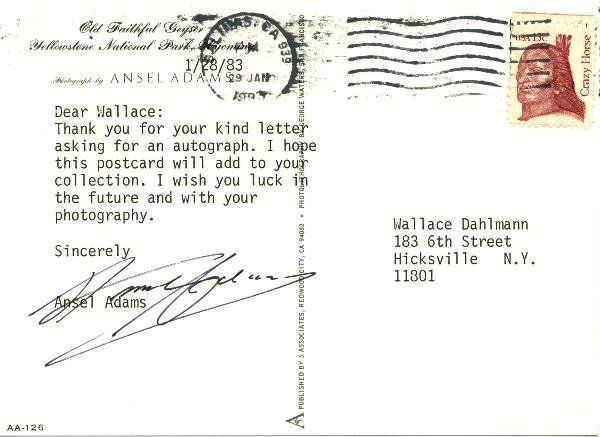 Old Faithful Geyser
Yellowstone National Park, Wyoming
1/28/83
Photograph by ANSEL ADAMS
SALINAS, CA 939
29 JAN
USA 13c
Crazy Horse
Dear Wallace:
Thank you for your kind letter
asking for an autograph. I hope
this postcard will add to your
collection. I wish you luck in
the future and with your
photography.
Sincerely
Ansel Adams
Wallace Dahlmann
183 6th Street
Hicksville N.Y.
11801
PUBLISHED BY 5 ASSOCIATES, REDWOOD CITY, CA 94062 • PHOTOLITHOGRAPHY BY GEORGE WATERS, SAN FRANCISCO
AA-126